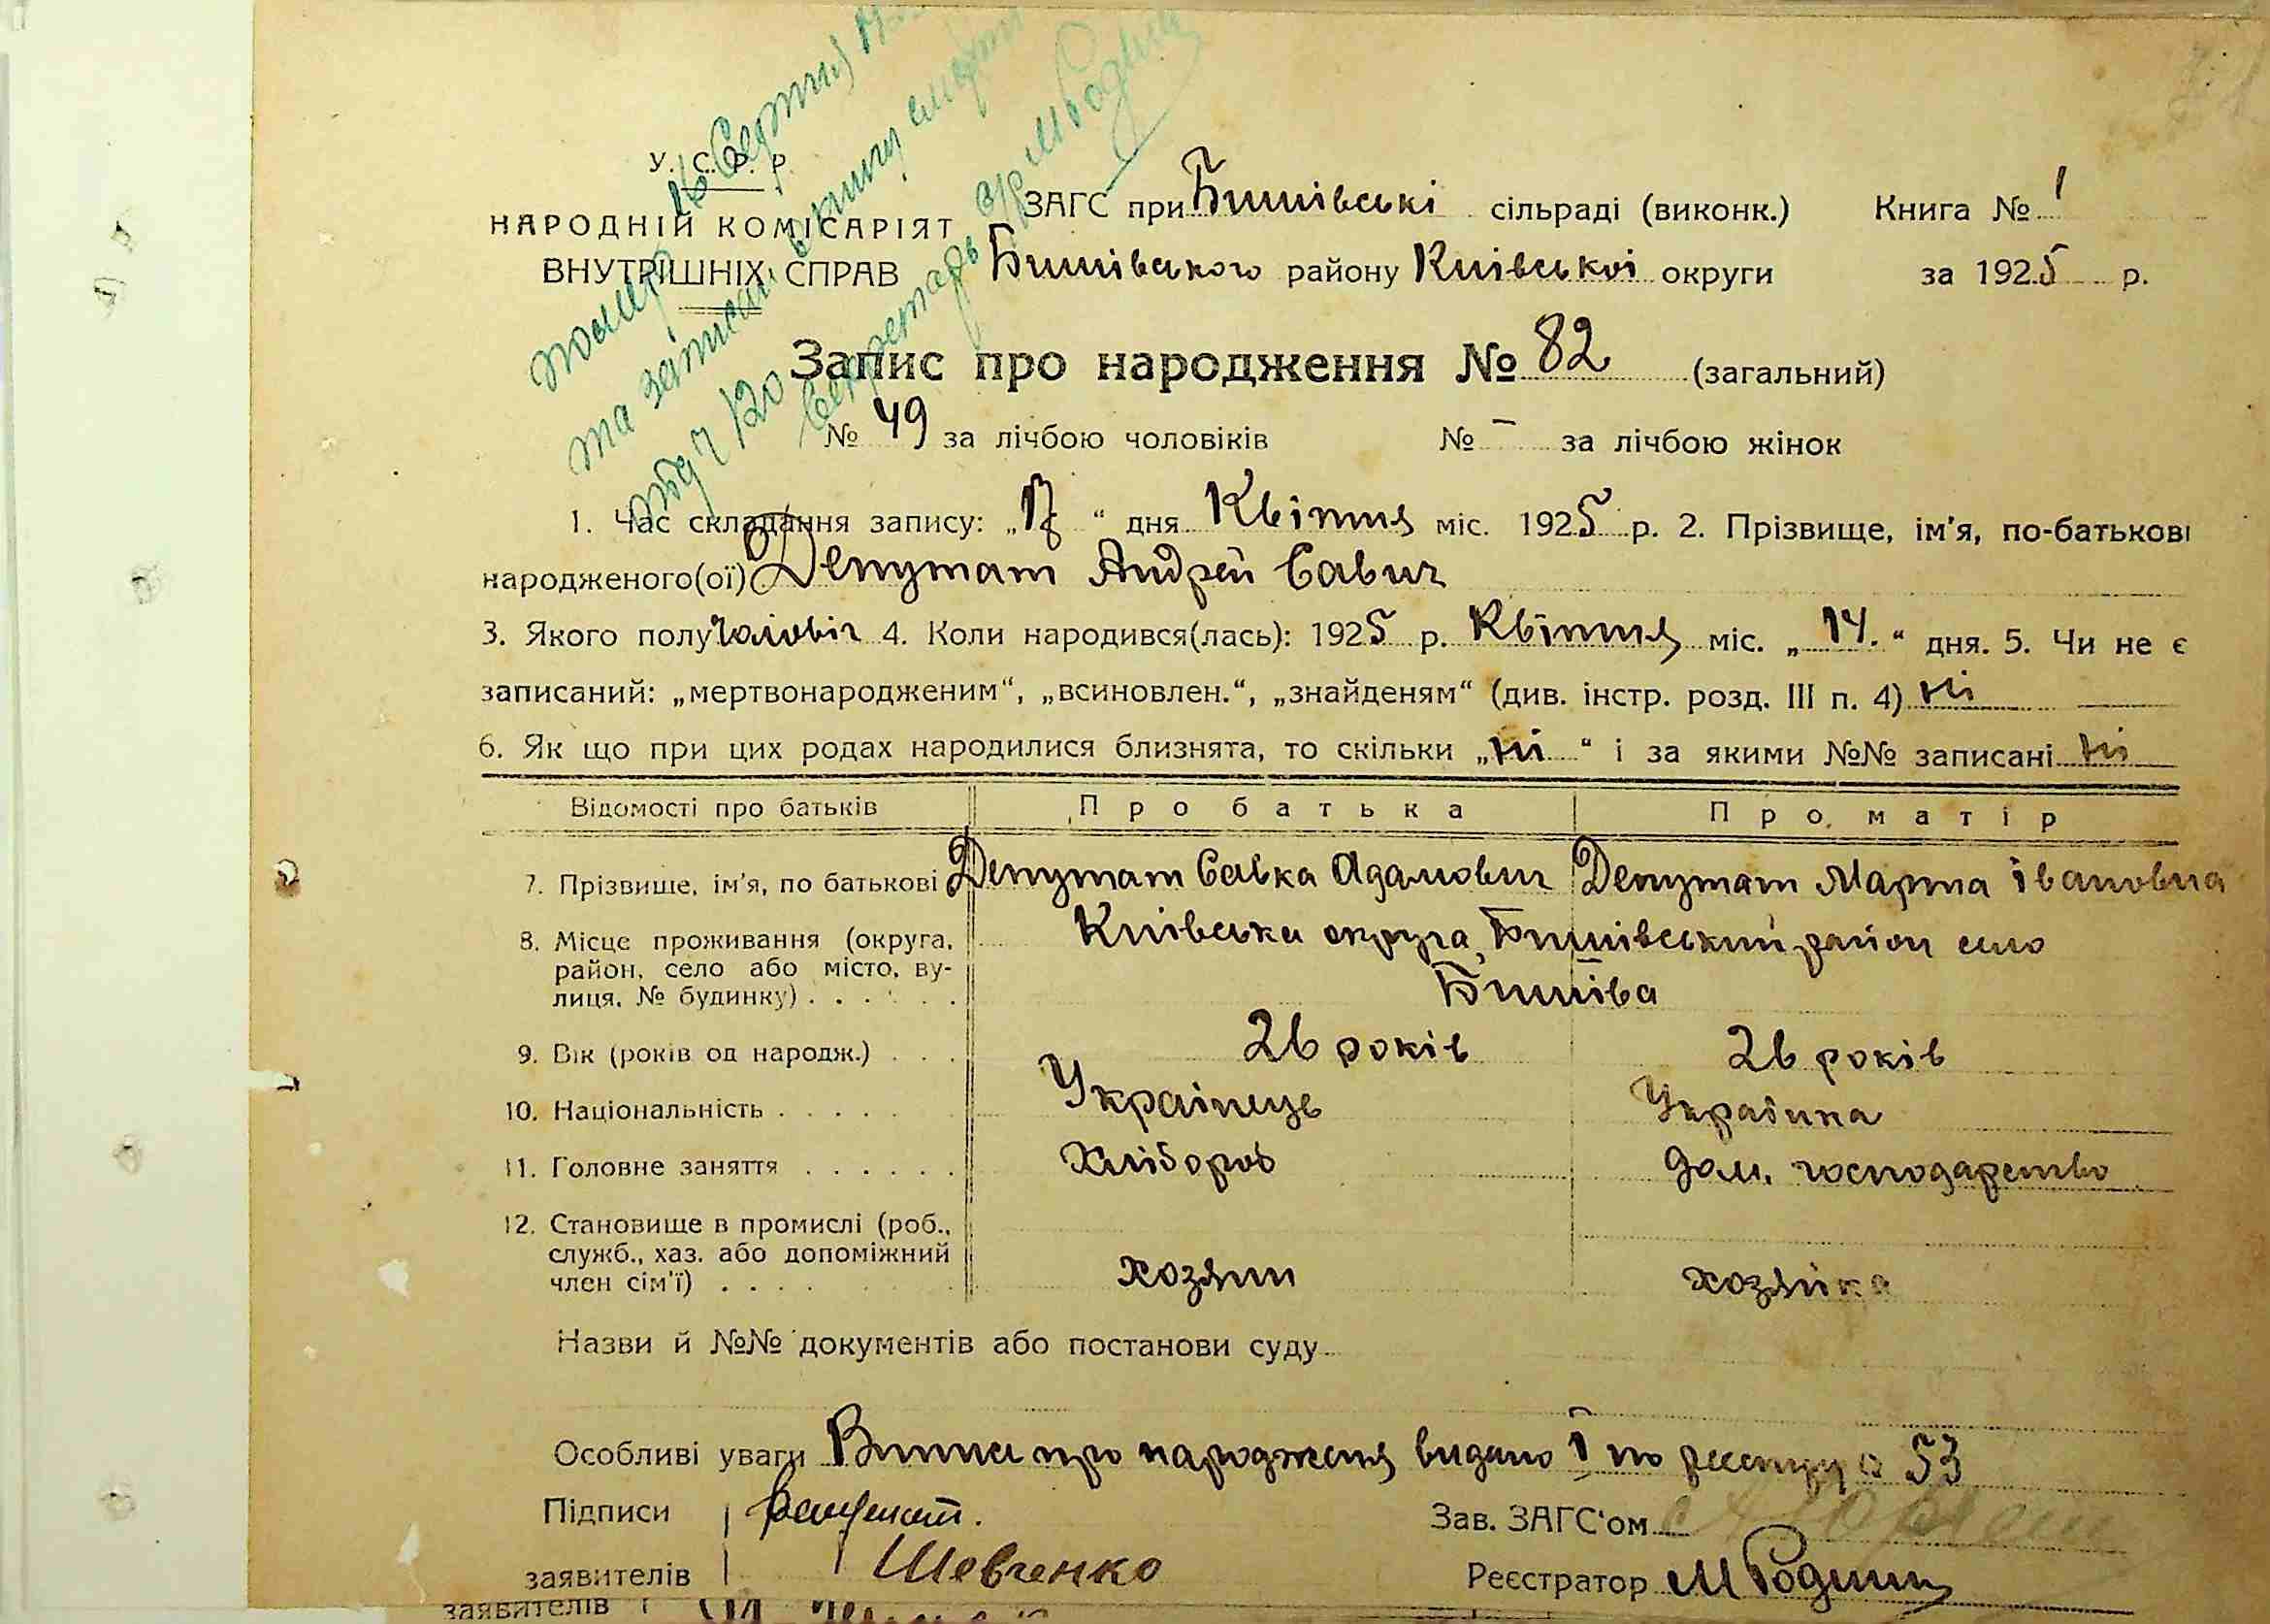 У. С. Р. Р.
НАРОДНІЙ КОМІСАРІЯТ
ВНУТРІШНІХ СПРАВ
ЗАГС при Бишівські сільраді (виконк.) Книга № 1
Бишівського району Київської округи за 1925 р.
помер
та записан в книгу смерти
під ч 120
Секретарь МРодин
Запис про народження № 82 (загальний)
№ 49 за лічбою чоловіків № – за лічбою жінок
1. Час складання запису: „17“ дня Квітня міс. 1925 р. 2. Прізвище, ім'я, по-батькові
народженого(ої) Депутат Андрей Савич
3. Якого полу Чоловіч 4. Коли народився(лась): 1925 р. Квітня міс. „14.“ дня. 5. Чи не є
записаний: „мертвонародженим“, „всиновлен.“, „знайденям“ (див. інстр. розд. III п. 4) ні
6. Як що при цих родах народилися близнята, то скільки „ні“ і за якими №№ записані ні
Відомості про батьків Про батька Про матір
7. Прізвище, ім'я, по батькові Депутат Савка Адамович Депутат Марта Івановна
8. Місце проживання (округа, Київська округа, Бишівський район село
район, село або місто, ву-
лиця, № будинку) . . . . . . Бишіва
9. Вік (років од народж.) . . . 26 років 26 років
10. Національність . . . . . Українець Українка
11. Головне заняття . . . . . . Хлібороб Дом. господарство
12. Становище в промислі (роб.,
служб., хаз. або допоміжний
член сім'ї) . . . . хозяин хозяйка
Назви й №№ документів або постанови суду
Особливі уваги Випис про народженя видано і по реєстру 53
Підписи Зав. ЗАГС'ом
Шевченко
заявителів Реєстратор МРодин
заявителів